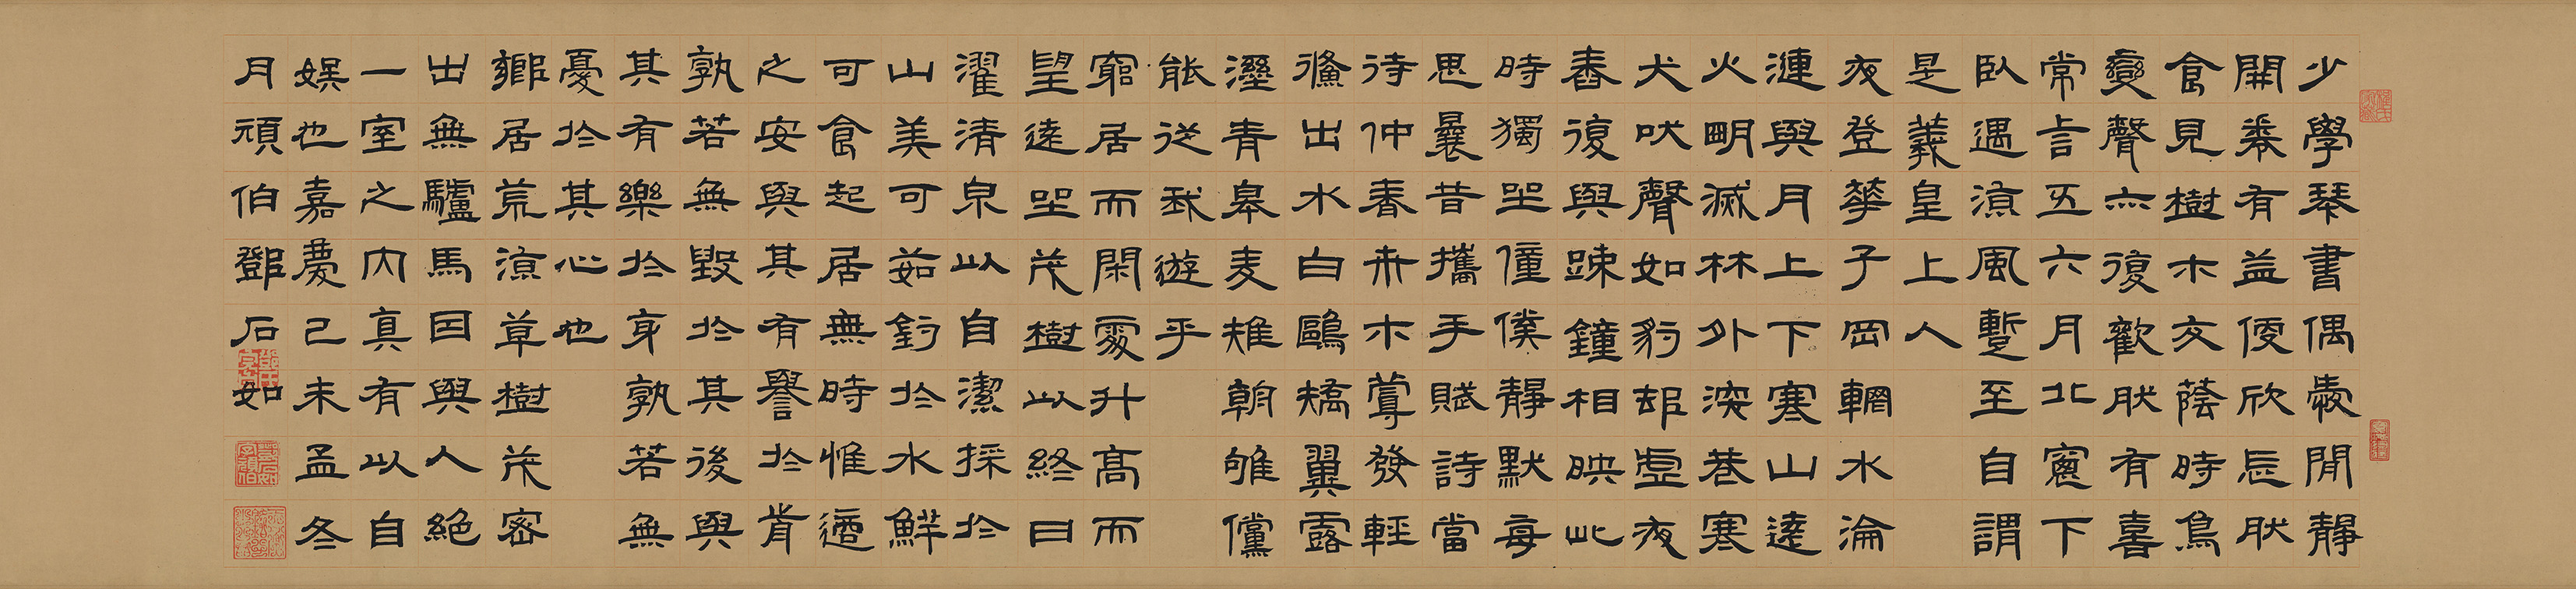 少學琴書偶愛閒靜
開卷有益便欣忘肰
食見樹木交蔭時鳥
變聲亦復歡肰有喜
常言五六月北窗下
臥遇涼風暫至自謂
是羲皇上人
夜登華子岡輞水淪
漣與月上下寒山遠
火明滅林外深巷寒
犬吠聲如豹邨虛夜
舂復與疎鐘相映此
時獨坐僮僕靜默每
思曩昔攜手賦詩當
待仲春卉木萼發輕
鯈出水白鷗矯翼露
溼青皋麥雉朝雊儻
能從我遊乎
窮居而閑處升高而
望遠坐茂樹以終日
濯清泉以自潔採於
山美可茹釣於水鮮
可食起居無時惟適
之安與其有譽於歬
孰若無毀於其後與
其有樂於身孰若無
憂於其心也
鄉居荒涼草樹茂密
出無驢馬因與人絕
一室之內真有以自
娛也嘉慶己未孟冬
月頑伯鄧石如